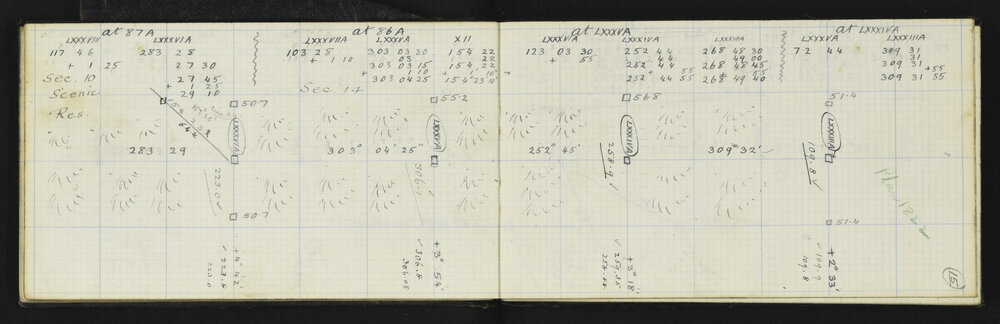 at 87A
LXXXVIII LXXXVIA
117 46 283 28
+ 1 25 27 30
Sec. 10 27 45
+ 1 25
Scenic 29 10
Res.
50.7
LXXXVIIA
283 29
223.0
50.7
+4° 42'
✓ 223.8
223.0
at 86A
LXXXVIIA LXXXVA XII
103 28 303 03 30 154 22
+ 1 10 03 22
303 03 15 154 22
+ 1 10 + 1 10
303 04 25 154° 23 10
Sec. 14
55.2
LXXXVIA
303° 04' 25"
306.1
+3° 54'
✓ 306.8
306.05
at LXXXVA
LXXXVIA LXXXIVA LXXIIIA
123 03 30 252 44 268 48 30
+ 55 44 49 00
252 44 268 48 45
+ 55 55
252 44 55 268 49 40
56.8
LXXXVA
252° 45'
258.9 ✓
+3° 18'
✓ 259.35
258.
at LXXXIVA
LXXXVA LXXXIIIA
72 44 309 31
31
309 31
+55
309 31 55
51.4
309° 32' ✓
109.8 ✓
Plan 1822
51.4
+2° 33'
✓ 109.9
109.8
15